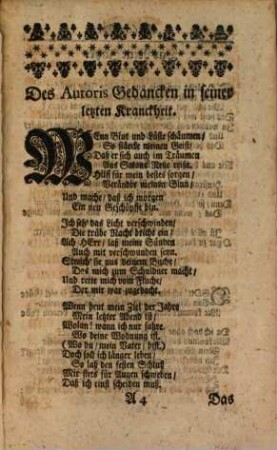 Des Autoris Gedancken in seiner
letzten Kranckheit.
Wenn Blut und Lüste schäumen/
So stärcke meinen Geist/
Daß er sich auch im Träumen
Hülff für mein bestes sorgen/
Verändre meinen Sinn/
Und mache/ daß ich morgen
Ein neu Geschöpffe bin.
Ich seh das Licht verschwinden/
Die trübe Nacht bricht ein/
Ach HErr/ laß meine Sünden
Auch mit verschwunden seyn.
Streich sie aus deinem Buche/
Das mich zum Schuldner macht/
Und rette mich vom Fluche/
Der mir war zugedacht.
Wenn heut mein Ziel der Jahre
Mein letzter Abend ist/
Wolan! wann ich nur fahre
Wo deine Wohnung ist.
(Wo du/ mein Vater/ bist.)
Doch soll ich länger leben/
So laß den festen Schluß
Mir stets für Augen schweben/
Daß ich einst scheiden muß.
A 4 Das